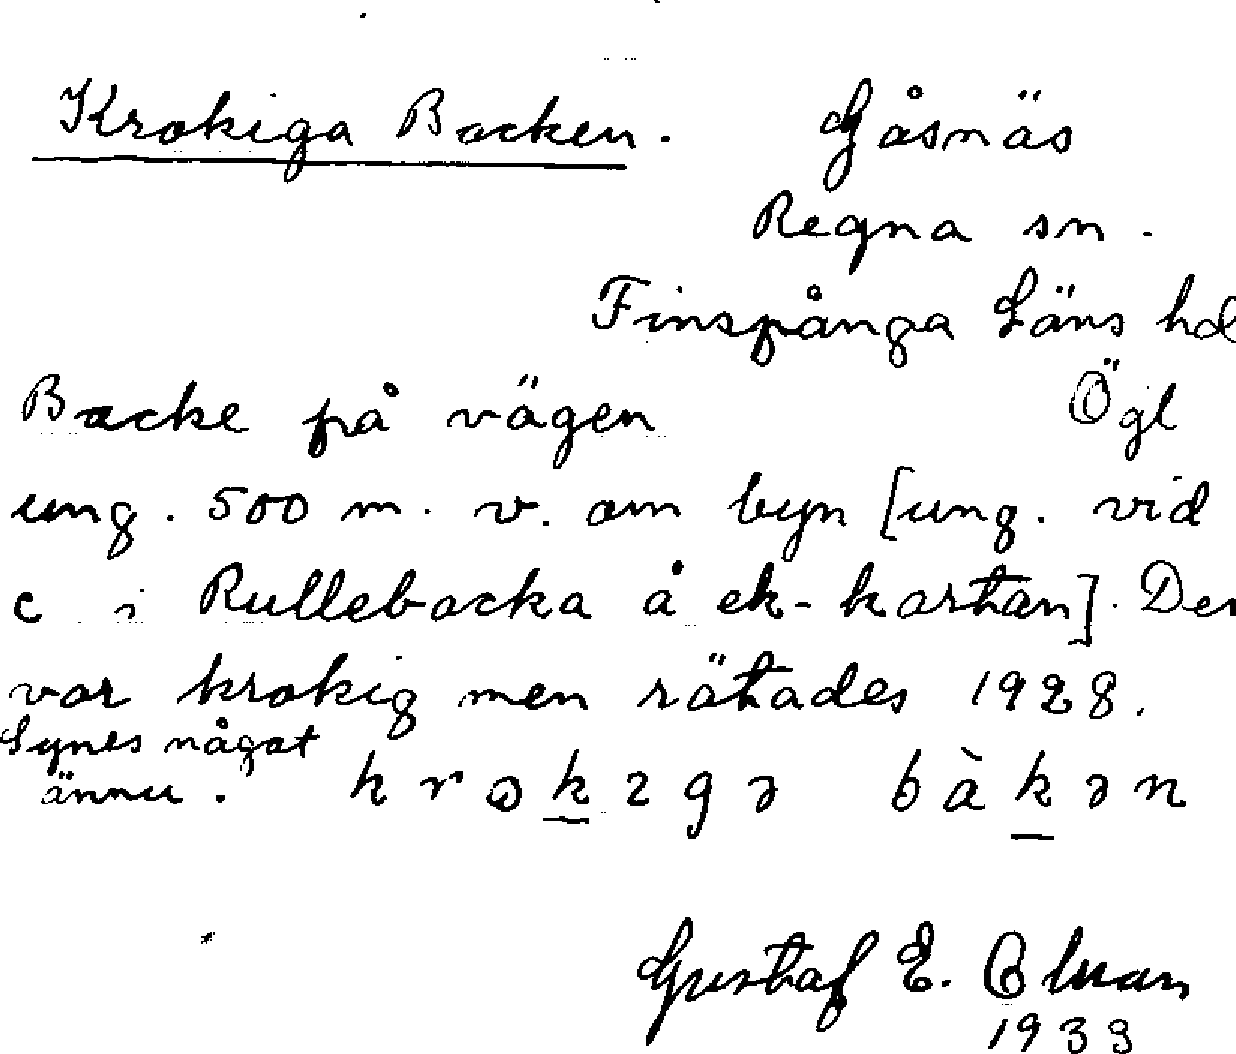 Krokiga Backen. Gåsnäs
Regna sn.
Finspånga Läns hd
Backe på vägen Ögl
ung. 500 m. v. om byn [ung. vid
c i Rullebacka å ek-kartan]. Den
var krokig men rätades 1928.
Synes något
ännu. 
Gustaf E.
1933